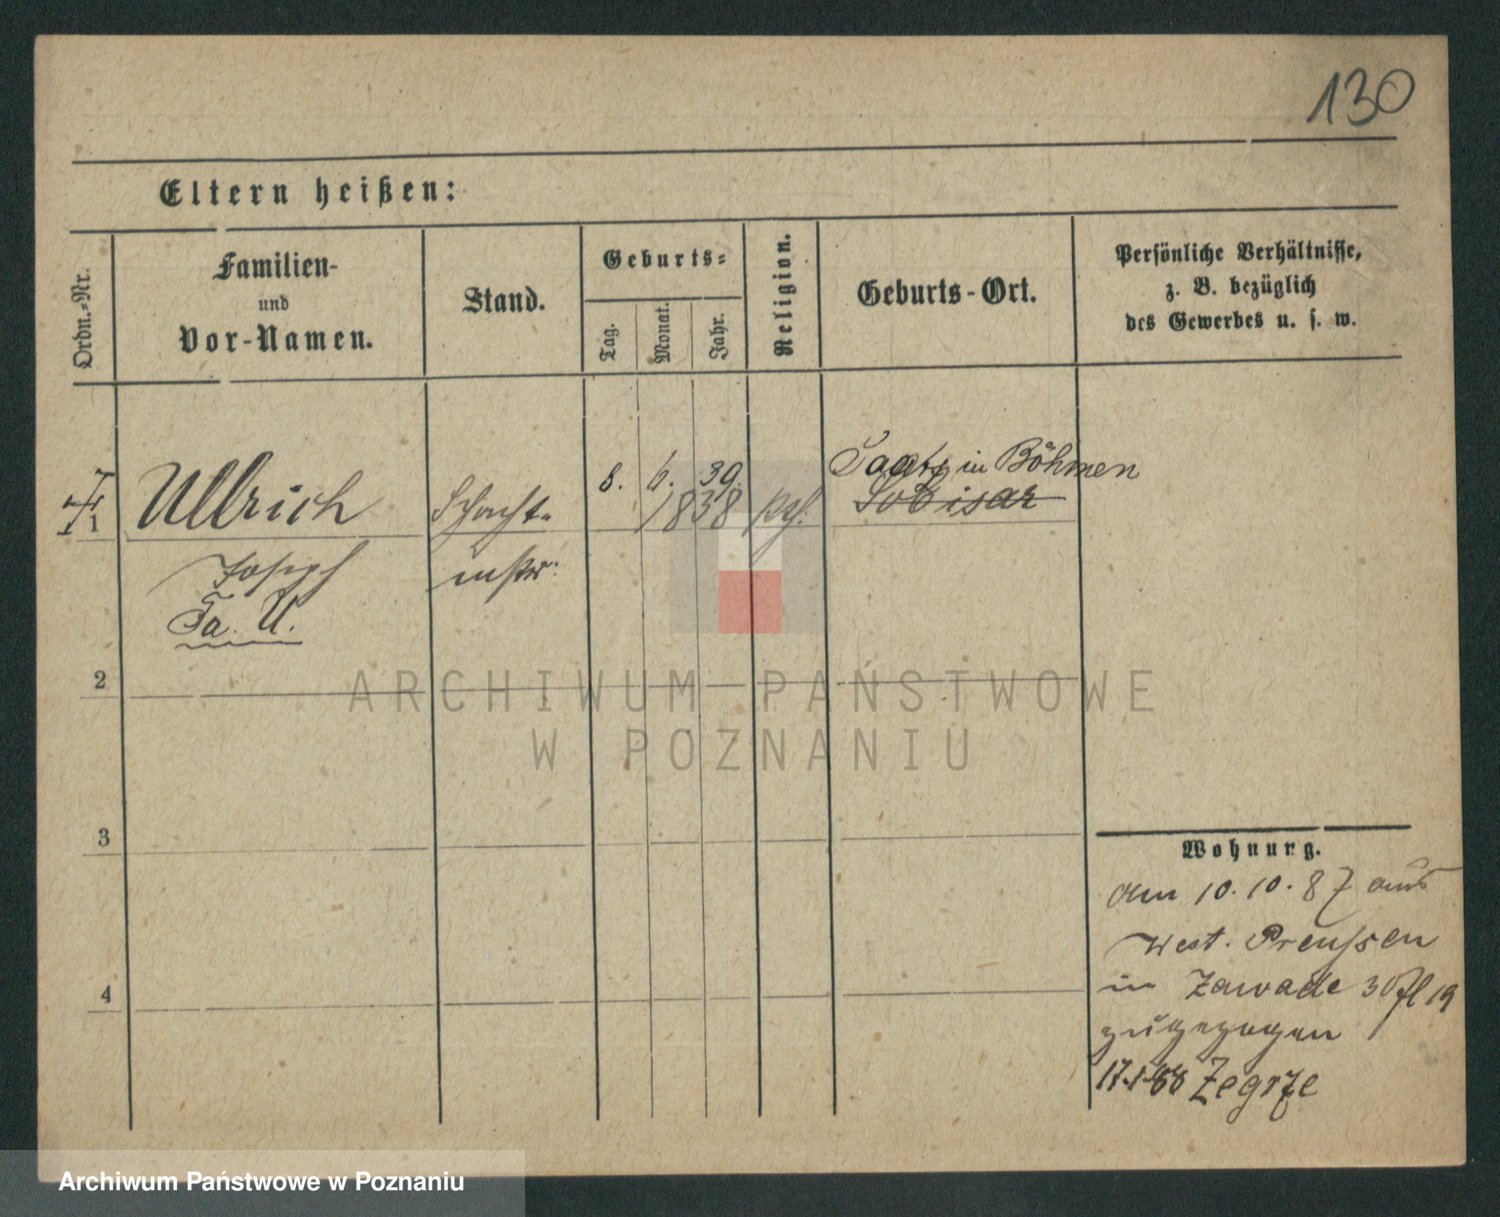 130
Eltern heißen:
Ordn.-Nr.
Familien-
und
Vor-Namen.
Stand.
Geburts-
Tag.
Monat.
Jahr.
Religion.
Geburts-Ort.
Persönliche Verhältnisse,
z. B. bezüglich
des Gewerbes u. s. w.
1
Ullrich
Schacht-
8. 6. 39.
1838
Saatz in Böhmen
Sobisar
Joseph
mstr.
Fa. U.
2
3
4
Wohnung.
Am 10.10.87 aus
West. Preußen
in Zawade 30 19
zugezogen
17.1.88 Zegrze
ARCHIWUM PAŃSTWOWE
W POZNANIU
Archiwum Państwowe w Poznaniu